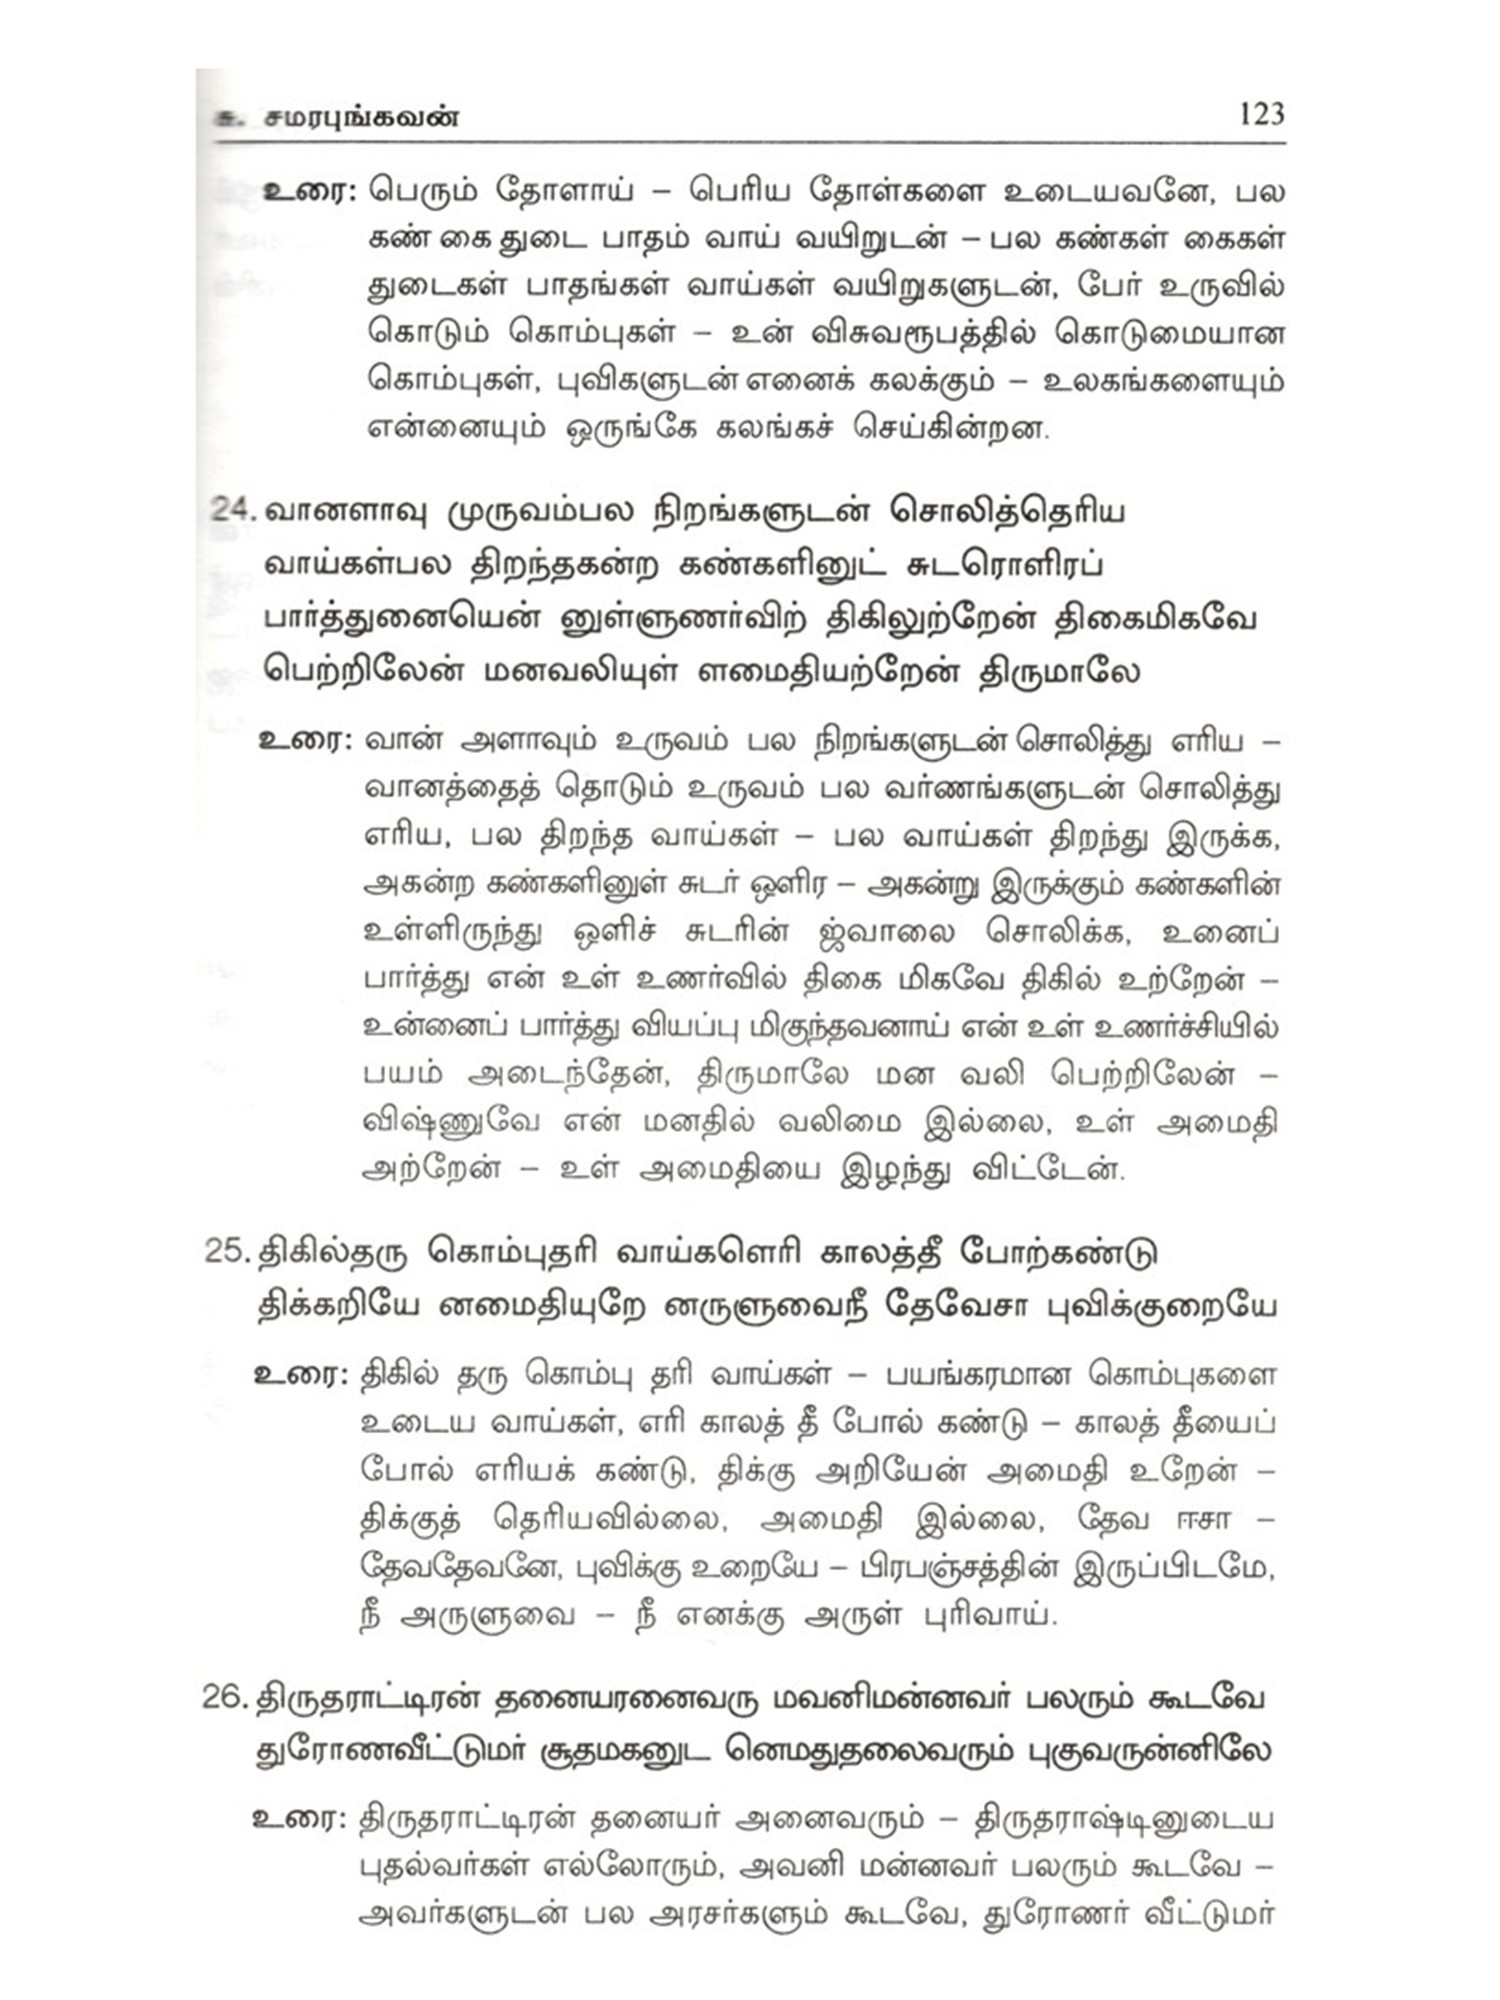 சு. சமரபுங்கவன் 123
உரை: பெரும் தோளாய் – பெரிய தோள்களை உடையவனே, பல
கண் கை துடை பாதம் வாய் வயிறுடன் – பல கண்கள் கைகள்
துடைகள் பாதங்கள் வாய்கள் வயிறுகளுடன், பேர் உருவில்
கொடும் கொம்புகள் – உன் விசுவரூபத்தில் கொடுமையான
கொம்புகள், புவிகளுடன் எனைக் கலக்கும் – உலகங்களையும்
என்னையும் ஒருங்கே கலங்கச் செய்கின்றன.
24. வானளாவு முருவம்பல நிறங்களுடன் சொலித்தெரிய
வாய்கள்பல திறந்தகன்ற கண்களினுட் சுடரொளிரப்
பார்த்துனையென் னுள்ளுணர்விற் திகிலுற்றேன் திகைமிகவே
பெற்றிலேன் மனவலியுள் ளமைதியற்றேன் திருமாலே
உரை: வான் அளாவும் உருவம் பல நிறங்களுடன் சொலித்து எரிய –
வானத்தைத் தொடும் உருவம் பல வர்ணங்களுடன் சொலித்து
எரிய, பல திறந்த வாய்கள் – பல வாய்கள் திறந்து இருக்க,
அகன்ற கண்களினுள் சுடர் ஒளிர – அகன்று இருக்கும் கண்களின்
உள்ளிருந்து ஒளிச் சுடரின் ஜ்வாலை சொலிக்க, உனைப்
பார்த்து என் உள் உணர்வில் திகை மிகவே திகில் உற்றேன் –
உன்னைப் பார்த்து வியப்பு மிகுந்தவனாய் என் உள் உணர்ச்சியில்
பயம் அடைந்தேன், திருமாலே மன வலி பெற்றிலேன் –
விஷ்ணுவே என் மனதில் வலிமை இல்லை, உள் அமைதி
அற்றேன் – உள் அமைதியை இழந்து விட்டேன்.
25. திகில்தரு கொம்புதரி வாய்களெரி காலத்தீ போற்கண்டு
திக்கறியே னமைதியுறே னருளுவைநீ தேவேசா புவிக்குறையே
உரை: திகில் தரு கொம்பு தரி வாய்கள் – பயங்கரமான கொம்புகளை
உடைய வாய்கள், எரி காலத் தீ போல் கண்டு – காலத் தீயைப்
போல் எரியக் கண்டு, திக்கு அறியேன் அமைதி உறேன் –
திக்குத் தெரியவில்லை, அமைதி இல்லை, தேவ ஈசா –
தேவதேவனே, புவிக்கு உறையே – பிரபஞ்சத்தின் இருப்பிடமே,
நீ அருளுவை – நீ எனக்கு அருள் புரிவாய்.
26. திருதராட்டிரன் தனையரனைவரு மவனிமன்னவர் பலரும் கூடவே
துரோணவீட்டுமர் சூதமகனுட னெமதுதலைவரும் புகுவருன்னிலே
உரை: திருதராட்டிரன் தனையர் அனைவரும் – திருதராஷ்டினுடைய
புதல்வர்கள் எல்லோரும், அவனி மன்னவர் பலரும் கூடவே –
அவர்களுடன் பல அரசர்களும் கூடவே, துரோணர் வீட்டுமர்